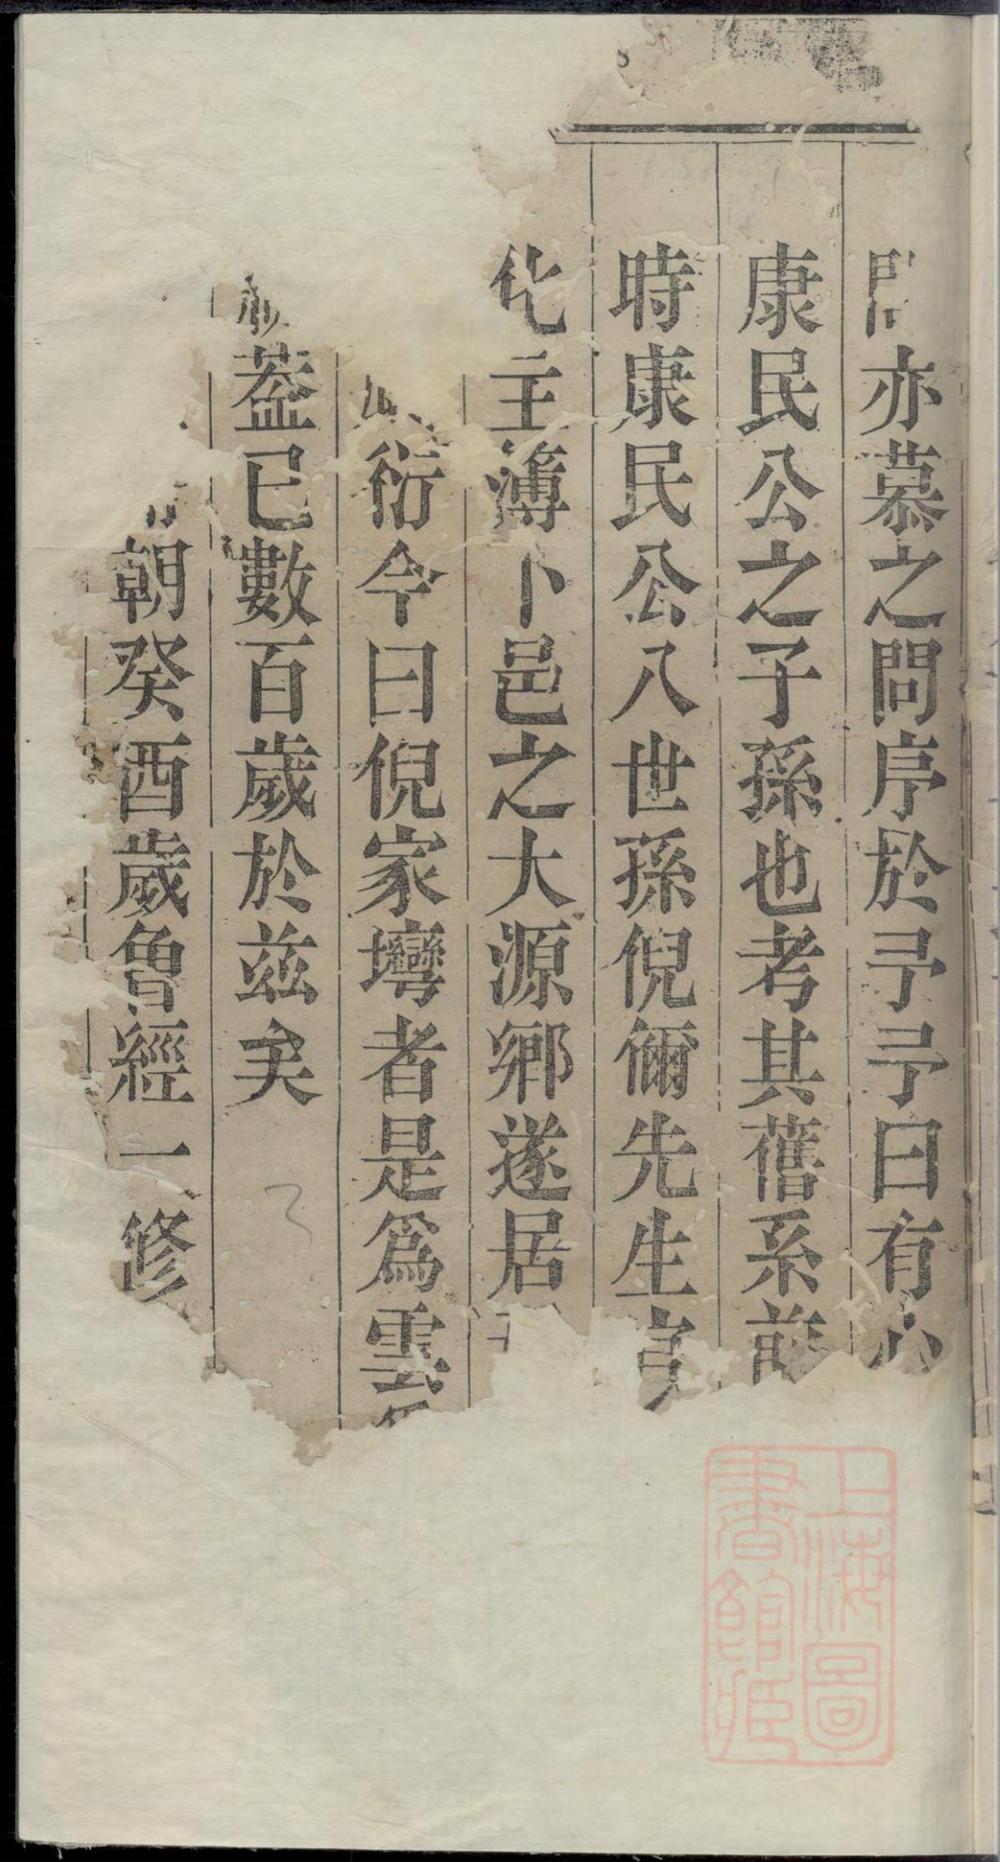 亦慕之問序於予予曰有心
康民公之子孫也考其舊系前
時康民公八世孫倪儞先生官
化主簿卜邑之大源鄉遂居
衍今曰倪家壪者是爲雲
蓋已數百歲於茲矣
朝癸酉歲魯經一修
上海圖書館藏